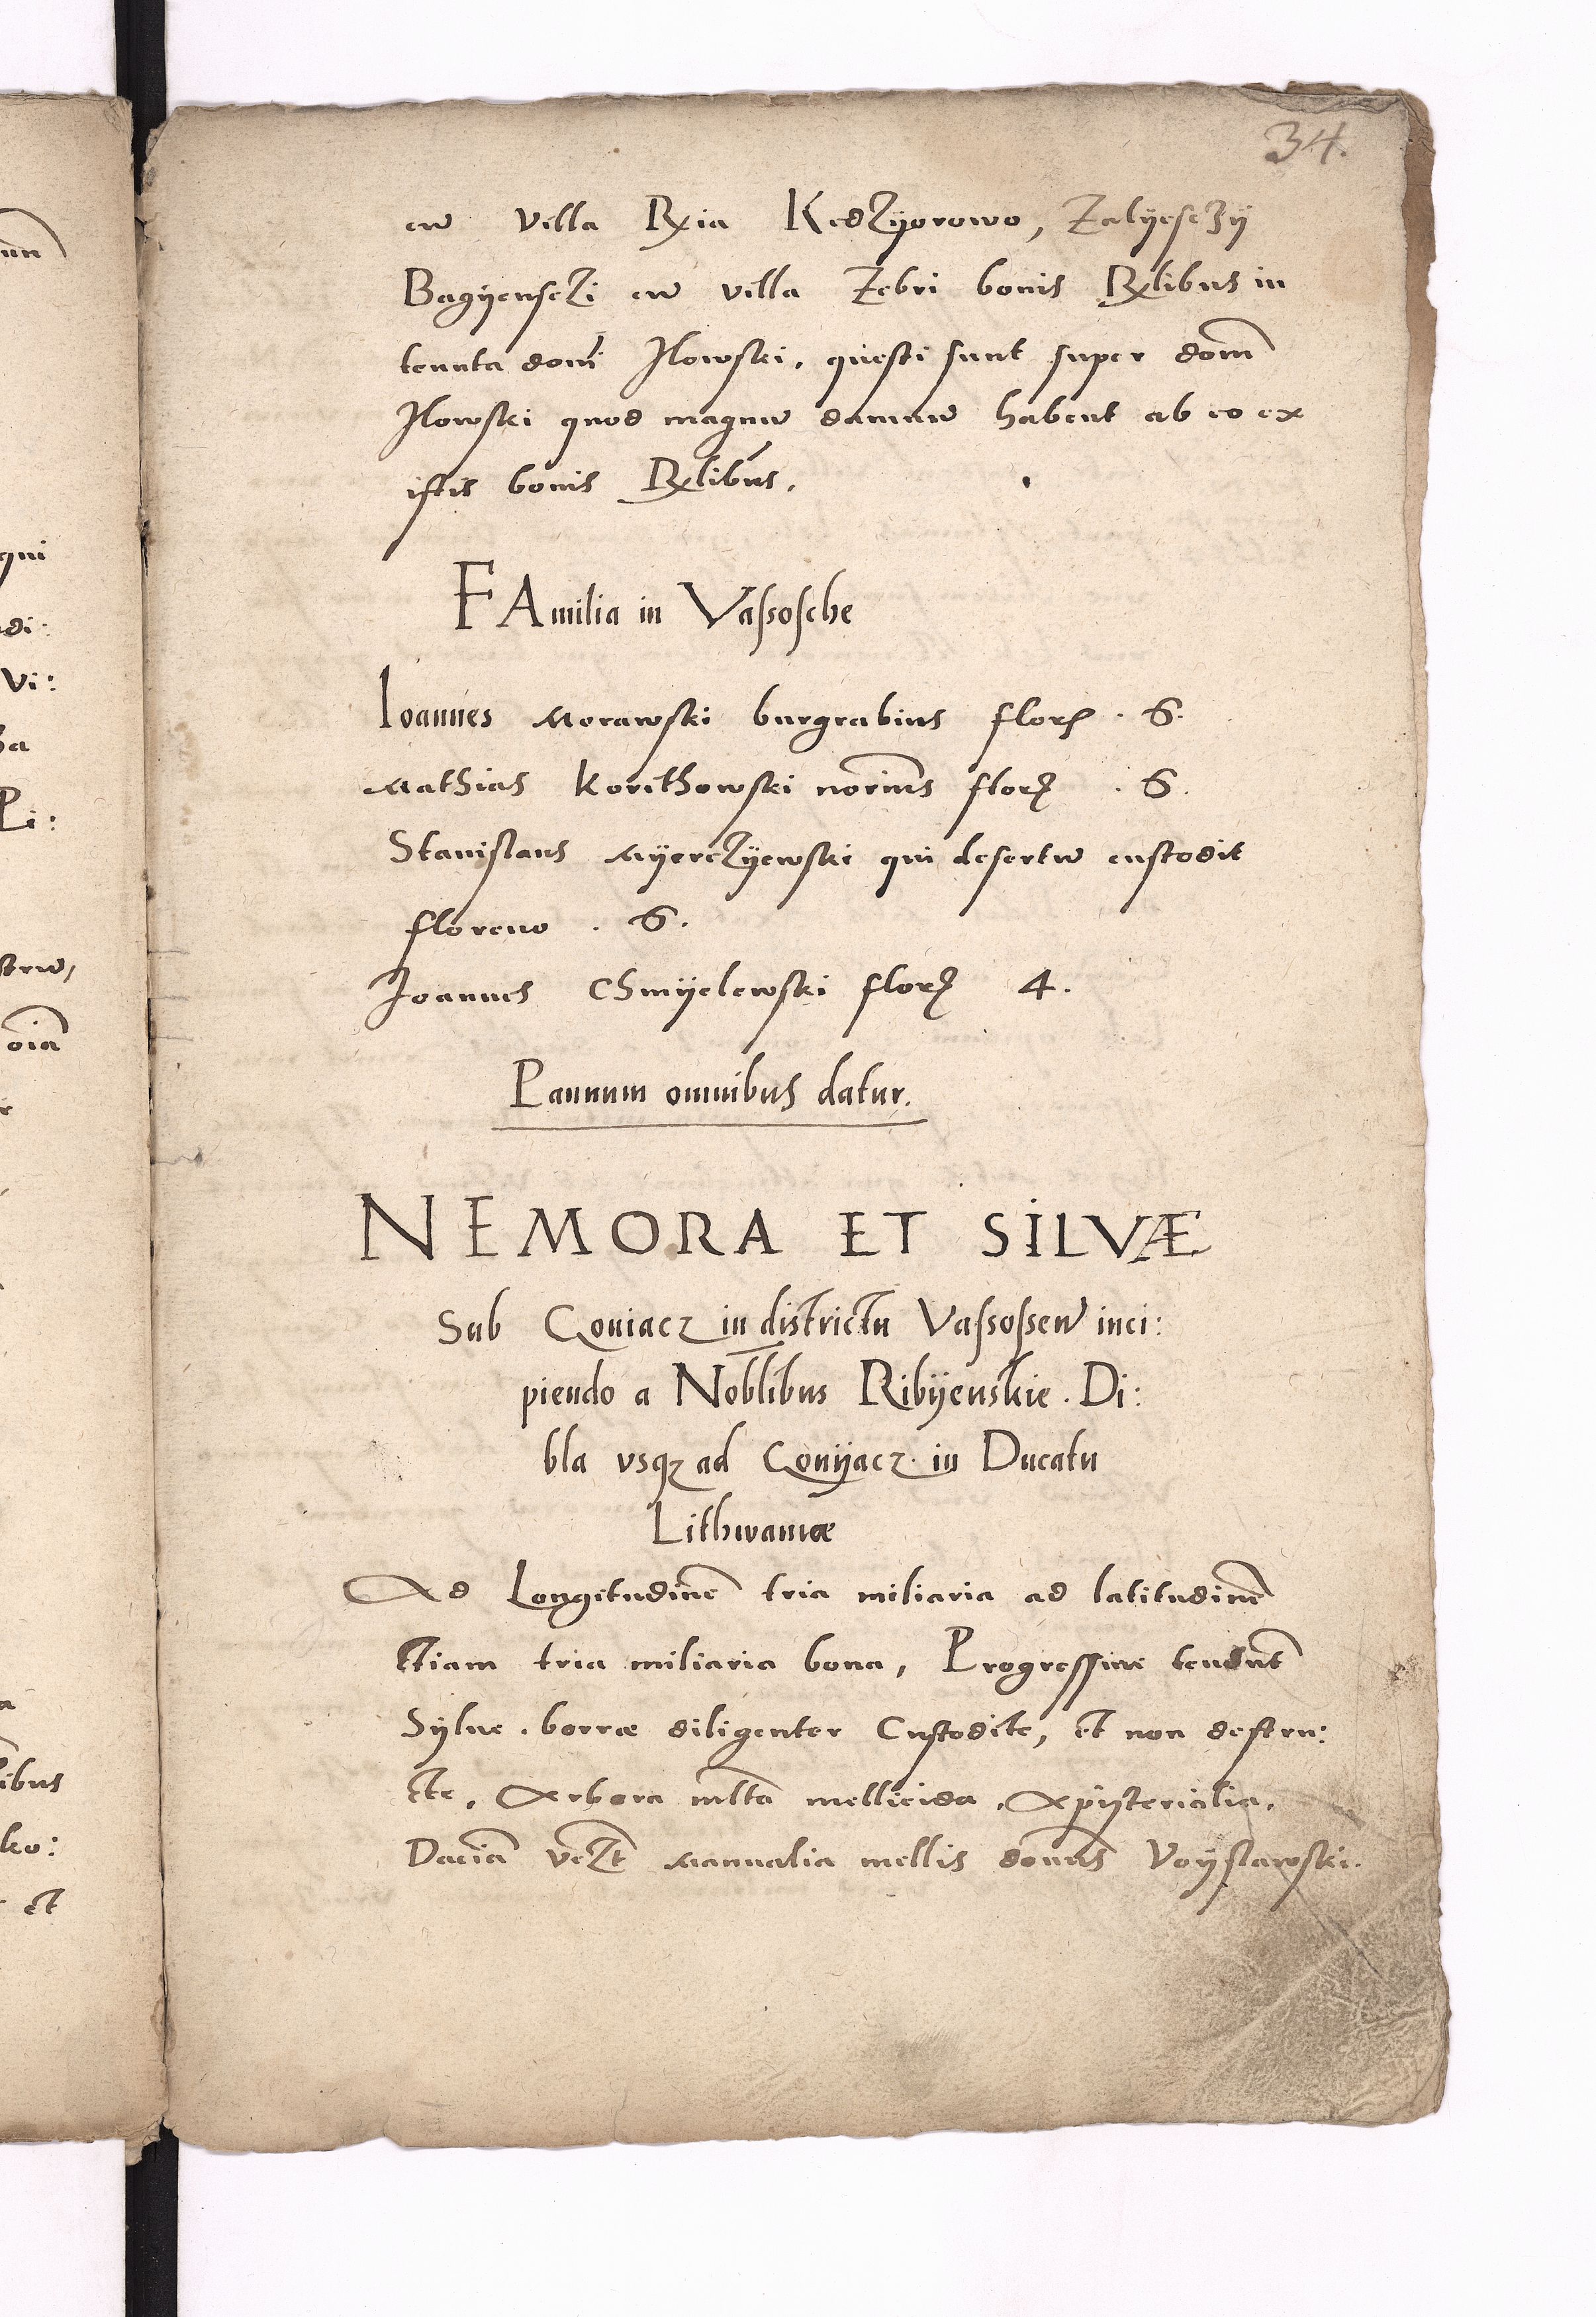 34.
cum villa Rxia Kedzyorowo, Zalyesczy
Bagyensczi cum villa Zebri bonis Rxlibus in
tenuta domi Ilowski. questi sunt super dom
Ilowski quod magnum damnum habent ab eo ex
istis bonis Rxlibus.
FAmilia in Vassosche
Ioannes Morawski burgrabius flor. 6.
Mathias Korithowski norius flor. 6.
Stanislaus Myerczyewski qui desertum custodit
florenos . 6.
Ioannes Chmyelewski flor. 4.
Pannum omnibus datur.
NEMORA ET SILVÆ
Sub Coniacz in districtu Vassossen inci:
piendo a Noblibus Ribyenskie. Di:
bla vsqz ad Conyacz in Ducatu
Lithwaniæ
Ad Longitudine tria miliaria ad latitudine
Etiam tria miliaria bona, Progressive tendunt
Sylue. borræ diligenter Custodite, et non destru:
cte. Arbora mlta mellicida.
Daciam mellis domus Voyslawski.